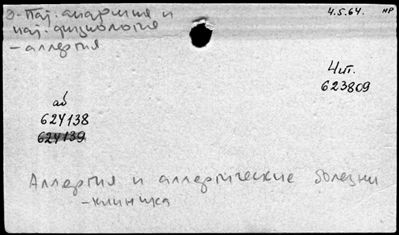 Э-Пат. анатомия и
пат. физиология
- аллергия
4.5.64. НР
Чит.
623809
аб
624138
624139
Аллергия и аллергические болезни
- клиника